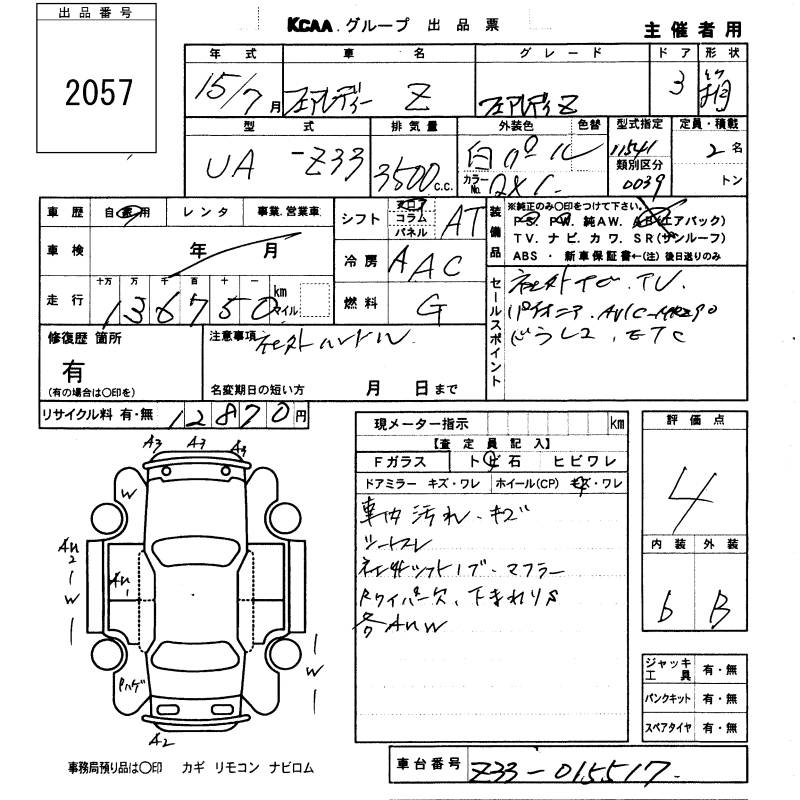 出品番号
2057
KCAA グループ 出品票
主催者用
年式 車名 グレード ドア 形状
15/7月 フェアレディー Z フェアレディZ 3
型式 排気量 外装色 色替 型式指定 定員・積載
UA-Z33 3500c.c. 白パール 11541 2名
カラーNo. QX1 類別区分 0039 トン
車歴 自家用 レンタ 事業.営業車
シフト フロア コラム パネル AT
装備品
※純正のみ○印をつけて下さい。
PS. PW. 純AW. AB(エアバック)
TV. ナビ. カワ. SR(サンルーフ)
ABS ・ 新車保証書←(注) 後日送りのみ
車検 年 月
冷房 AAC
走行 十万 万 千 百 十 一
136750 km マイル
燃料 G
セールスポイント
社外ナビ. TV.
ETC
修復歴 箇所
有
(有の場合は○印を)
注意事項 社外ハンドル
名変期日の短い方 月 日まで
リサイクル料 有・無 12870円
現メーター指示 km
【査定員記入】
Fガラス トビ石 ヒビワレ
ドアミラー キズ・ワレ ホイール(CP) キズ・ワレ
車内汚れ・キズ
シートスレ
社外シフトノブ・マフラー
Rワイパー欠、下まわりS
各AUW
評価点
4
内装 外装
b B
ジャッキ工具 有・無
パンクキット 有・無
スペアタイヤ 有・無
A3 A3 A3
W
AU2
W
AU1
W
Pハゲ
A2
事務局預り品は○印 カギ リモコン ナビロム
車台番号 Z33-015517